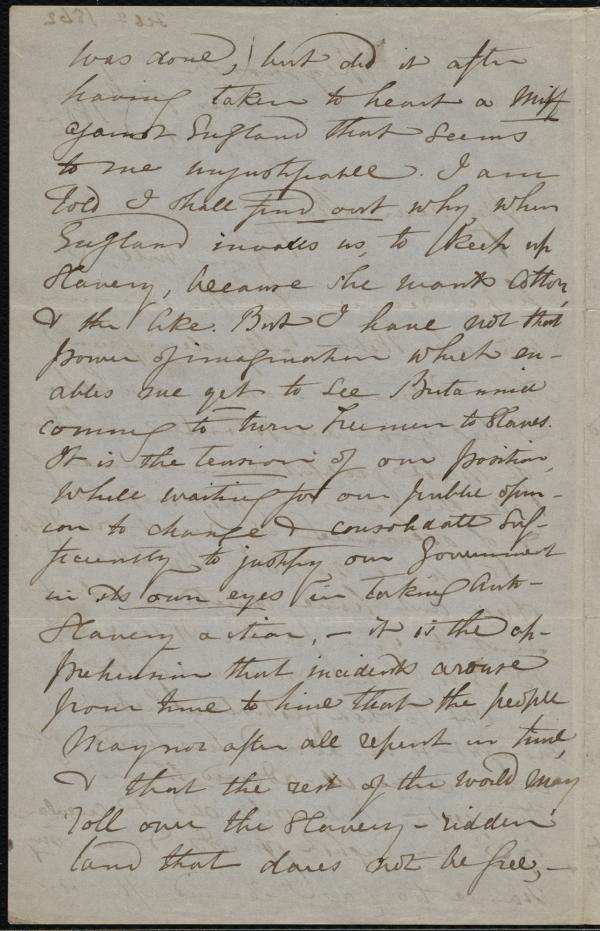 was done, but did it after
having taken to heart a Miff
against England that seems
to me unjustifiable. I am
told I shall find out why, when
England invades us, to keep up
Slavery, because she wants Cotton,
& the like. But I have not that
power of imagination which en-
ables me yet to see Britannia
coming to turn freemen to Slaves.
It is the tension of our position,
while waiting for our public opin-
ion to change & consolidate suf-
ficiently to justify our Government
in its own eyes in taking Anti-
Slavery action, - it is the ap-
prehension that incidents arouse
from time to time that the people
may not after all repent in time,
& that the rest of the world may
roll over the Slavery-ridden
land that dares not be free, -